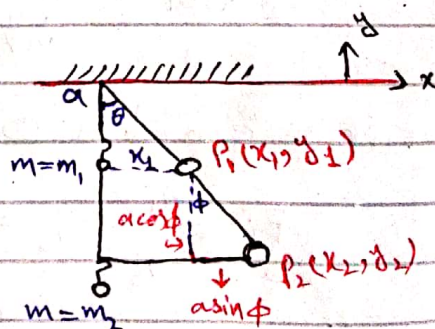 y
x
a
θ
m=m₁
x₁
P₁(x₁,y1)
ϕ
acosϕ
P₂(x₂,y₂)
m=m₂
asinϕ